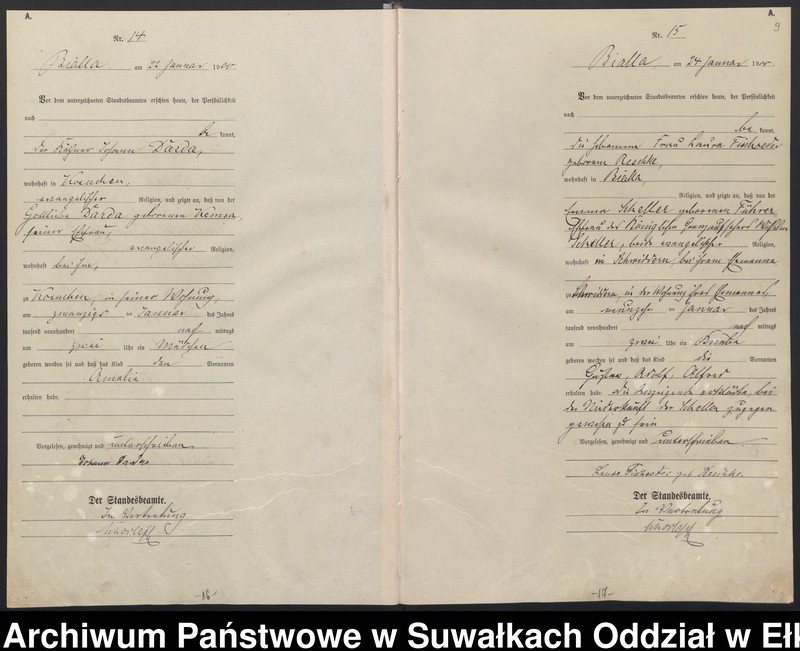 A.
Nr. 14
Bialla am 22 Januar 1900.
Vor dem unterzeichneten Standesbeamten erschien heute, der Persönlichkeit
nach
be kannt,
der Käthner Johann Darda,
wohnhaft in
evangelischer Religion, und zeigte an, daß von der
Gottliebe Darda geborenen
seiner Ehefrau,
evangelischer Religion,
wohnhaft bei ihm,
zu in seiner Wohnung,
am zwanzigs ten Januar des Jahres
tausend neunhundert nach mittags
um zwei Uhr ein Mädchen
geboren worden sei und daß das Kind den Vornamen
Amalie
erhalten habe.
Vorgelesen, genehmigt und unterschrieben
Johann Darda
Der Standesbeamte.
In Vertretung
-16-
A.
9
Nr. 15
Bialla am 24 Januar 1900.
Vor dem unterzeichneten Standesbeamten erschien heute, der Persönlichkeit
nach
be kannt,
die Hebamme Frau Laura
geborene Reschke,
wohnhaft in Bialla,
Religion, und zeigte an, daß von der
Emma Scheller geborenen Führer
Ehefrau des Königlichen Grenzaufsehers Wilhelm
Scheller, beide evangelischer Religion,
wohnhaft in Schwiddern, bei ihrem Ehemanne
zu Schwiddern, in der Wohnung ihres Ehemannes
am neunzehn ten Januar des Jahres
tausend neunhundert nach mittags
um zwei Uhr ein Knabe
geboren worden sei und daß das Kind die Vornamen
Gustav, Adolf, Alfred
erhalten habe. Die Anzeigende erklärte, bei
der Niederkunft der Scheller zugegen
gewesen zu sein
Vorgelesen, genehmigt und unterschrieben
geb Reschke.
Der Standesbeamte.
In Vertretung
-17-
Archiwum Państwowe w Suwałkach Oddział w Ełk